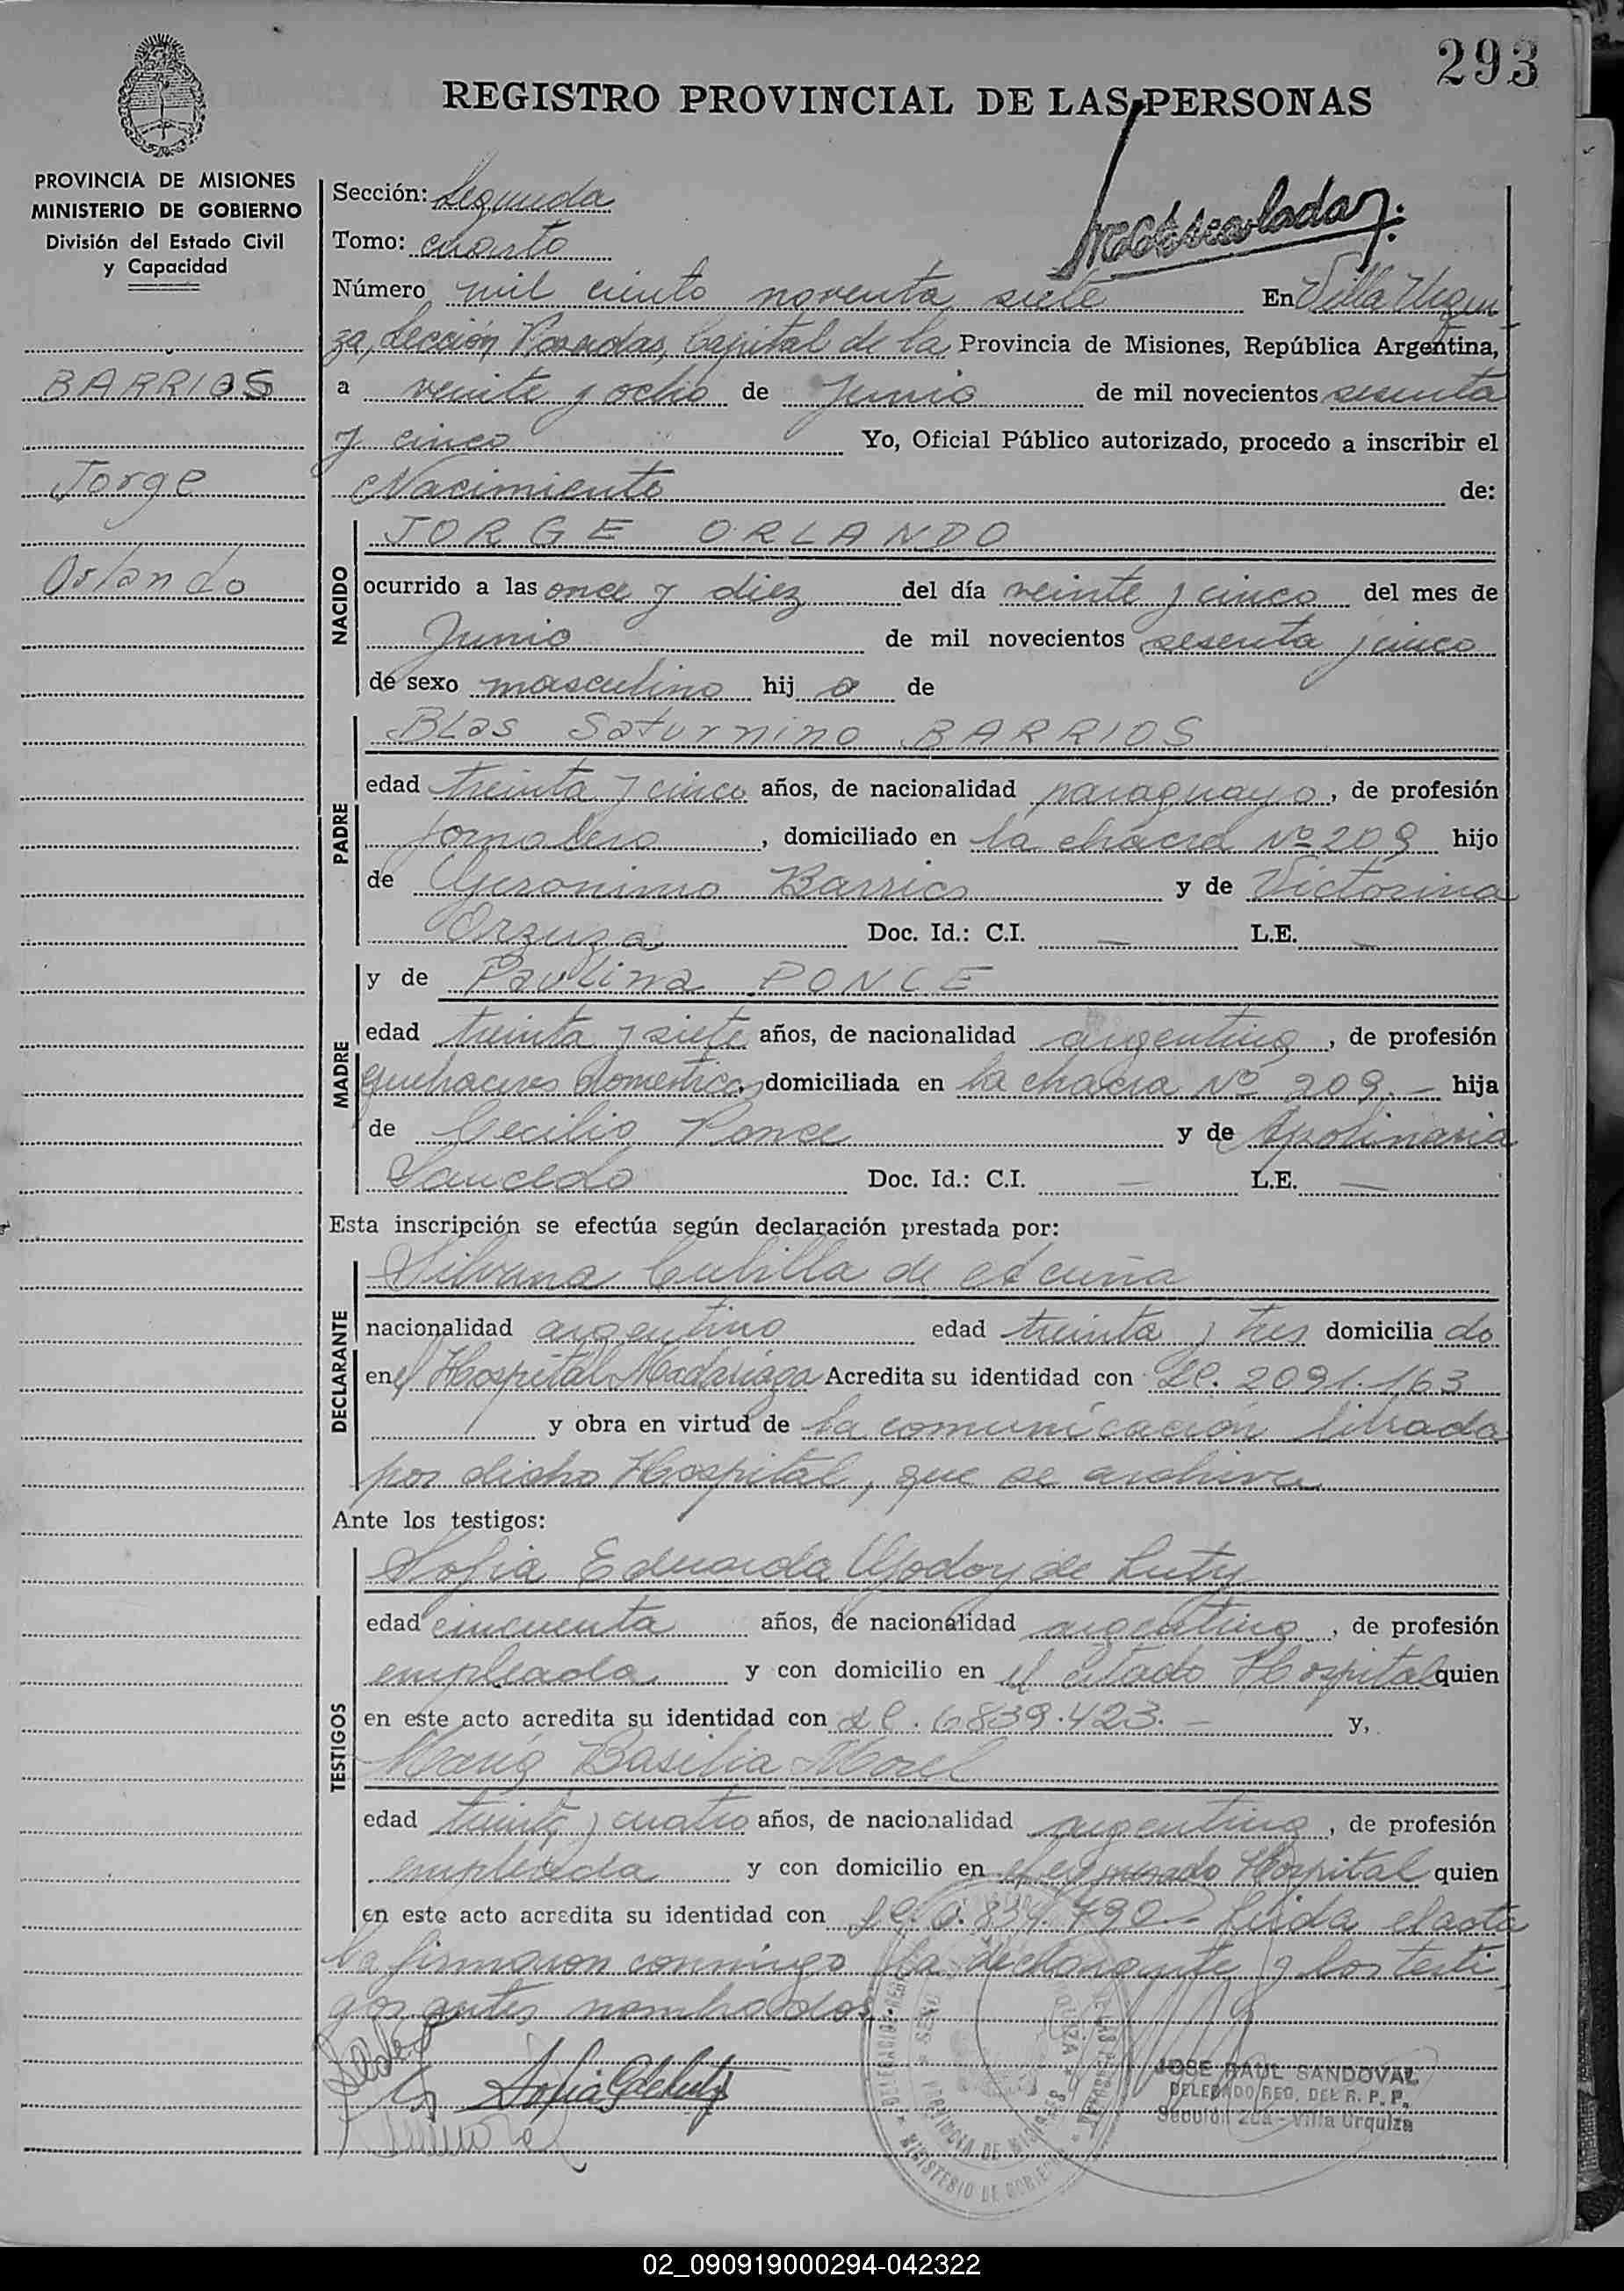 293
REGISTRO PROVINCIAL DE LAS PERSONAS
PROVINCIA DE MISIONES
MINISTERIO DE GOBIERNO
División del Estado Civil
y Capacidad
BARRIOS
Jorge
Orlando
Sección: Segunda
Tomo: cuarto
Número mil ciento noventa siete En Villa Urqui
za, Sección Posadas, Capital de la Provincia de Misiones, República Argentina,
a veinte y ocho de Junio de mil novecientos sesenta
y cinco Yo, Oficial Público autorizado, procedo a inscribir el
Nacimiento de:
NACIDO
JORGE ORLANDO
ocurrido a las once y diez del día veinte y cinco del mes de
Junio de mil novecientos sesenta y cinco
de sexo masculino hij o de
PADRE
Blas Saturnino BARRIOS
edad treinta y cinco años, de nacionalidad paraguayo, de profesión
jornalero, domiciliado en la chacra Nº 209 hijo
de Geronimo Barrios y de Victorina
Orzuza Doc. Id.: C.I. — L.E. —
MADRE
y de Paulina PONCE
edad treinta y siete años, de nacionalidad argentina, de profesión
quehaceres domesticos, domiciliada en la chacra Nº 209.- hija
de Cecilio Ponce y de Apolinaria
Saucedo Doc. Id.: C.I. — L.E. —
Esta inscripción se efectúa según declaración prestada por:
DECLARANTE
Silvana Cubilla de
nacionalidad argentino edad treinta y tres domicilia do
en el Hospital Madariaga Acredita su identidad con Lc. 2091.163
y obra en virtud de la comunicación librada
por dicho Hospital, que se archiva
Ante los testigos:
TESTIGOS
Sofia Eduarda Godoy de Luty
edad cincuenta años, de nacionalidad argentina, de profesión
empleada y con domicilio en el citado Hospital quien
en este acto acredita su identidad con Lc. 6839.423.- y,
María Basilia Morel
edad treinta y cuatro años, de nacionalidad argentina, de profesión
empleada y con domicilio en el expresado Hospital quien
en este acto acredita su identidad con Lc. 6.834.790.- Leida el acta
la firmaron conmigo la declarante y los testi
gos antes nombrados
Sofia G de Luty
JOSE RAUL SANDOVAL
DELEGADO REG. DEL R. P. P.
Sección 2da - Villa Urquiza
PROVINCIA DE MISIONES
MINISTERIO DE GOBIERNO
02_090919000294-042322